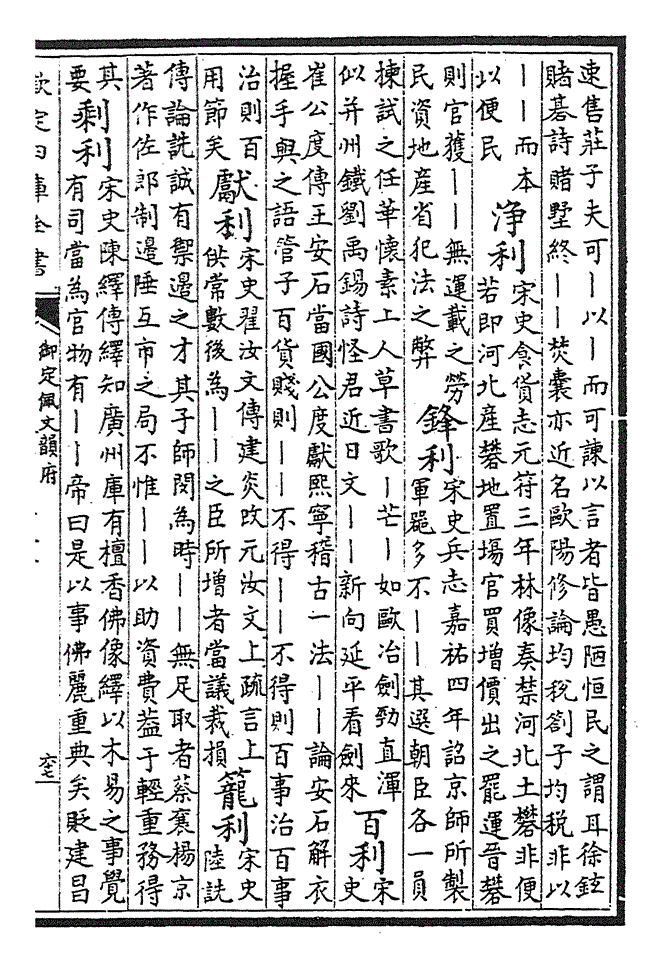 速售莊子夫可｜以｜而可諫以言者皆愚陋恒民之謂耳徐鉉
賭碁詩賭墅終｜｜焚囊亦近名歐陽修論均稅劄子均税非以
｜｜而本
以便民
淨利
宋史食貨志元符三年林像奏禁河北土礬非便
若即河北産礬地置塲官買增價出之罷運晉礬
則官獲｜｜無運載之勞
民資地産省犯法之弊
鋒利
宋史兵志嘉祐四年詔京師所製
軍噐多不｜｜其選朝臣各一員
揀試之任華懷素上人草書歌｜芒｜如歐冶劍勁直渾
似并州鐵劉禹錫詩怪君近日文｜｜新向延平看劍來
百利
宋
史
崔公度傳王安石當國公度獻熙寧稽古一法｜｜論安石解衣
握手與之語管子百貨賤則｜｜不得｜｜不得則百事治百事
治則百
用節矣
獻利
宋史翟汝文傳建炎改元汝文上疏言上
供常數後為｜｜之臣所增者當議裁損
籠利
宋史
陸詵
傳論詵誠有禦邊之才其子師閔為時｜｜無足取者蔡襄楊京
著作佐郎制邊陲互市之局不惟｜｜以助資費葢于輕重務得
其
要
剩利
宋史陳繹傳繹知廣州庫有檀香佛像繹以木易之事覺
有司當為官物有｜｜帝曰是以事佛麗重典矣貶建昌
欽定四庫全書
御定佩文韻府